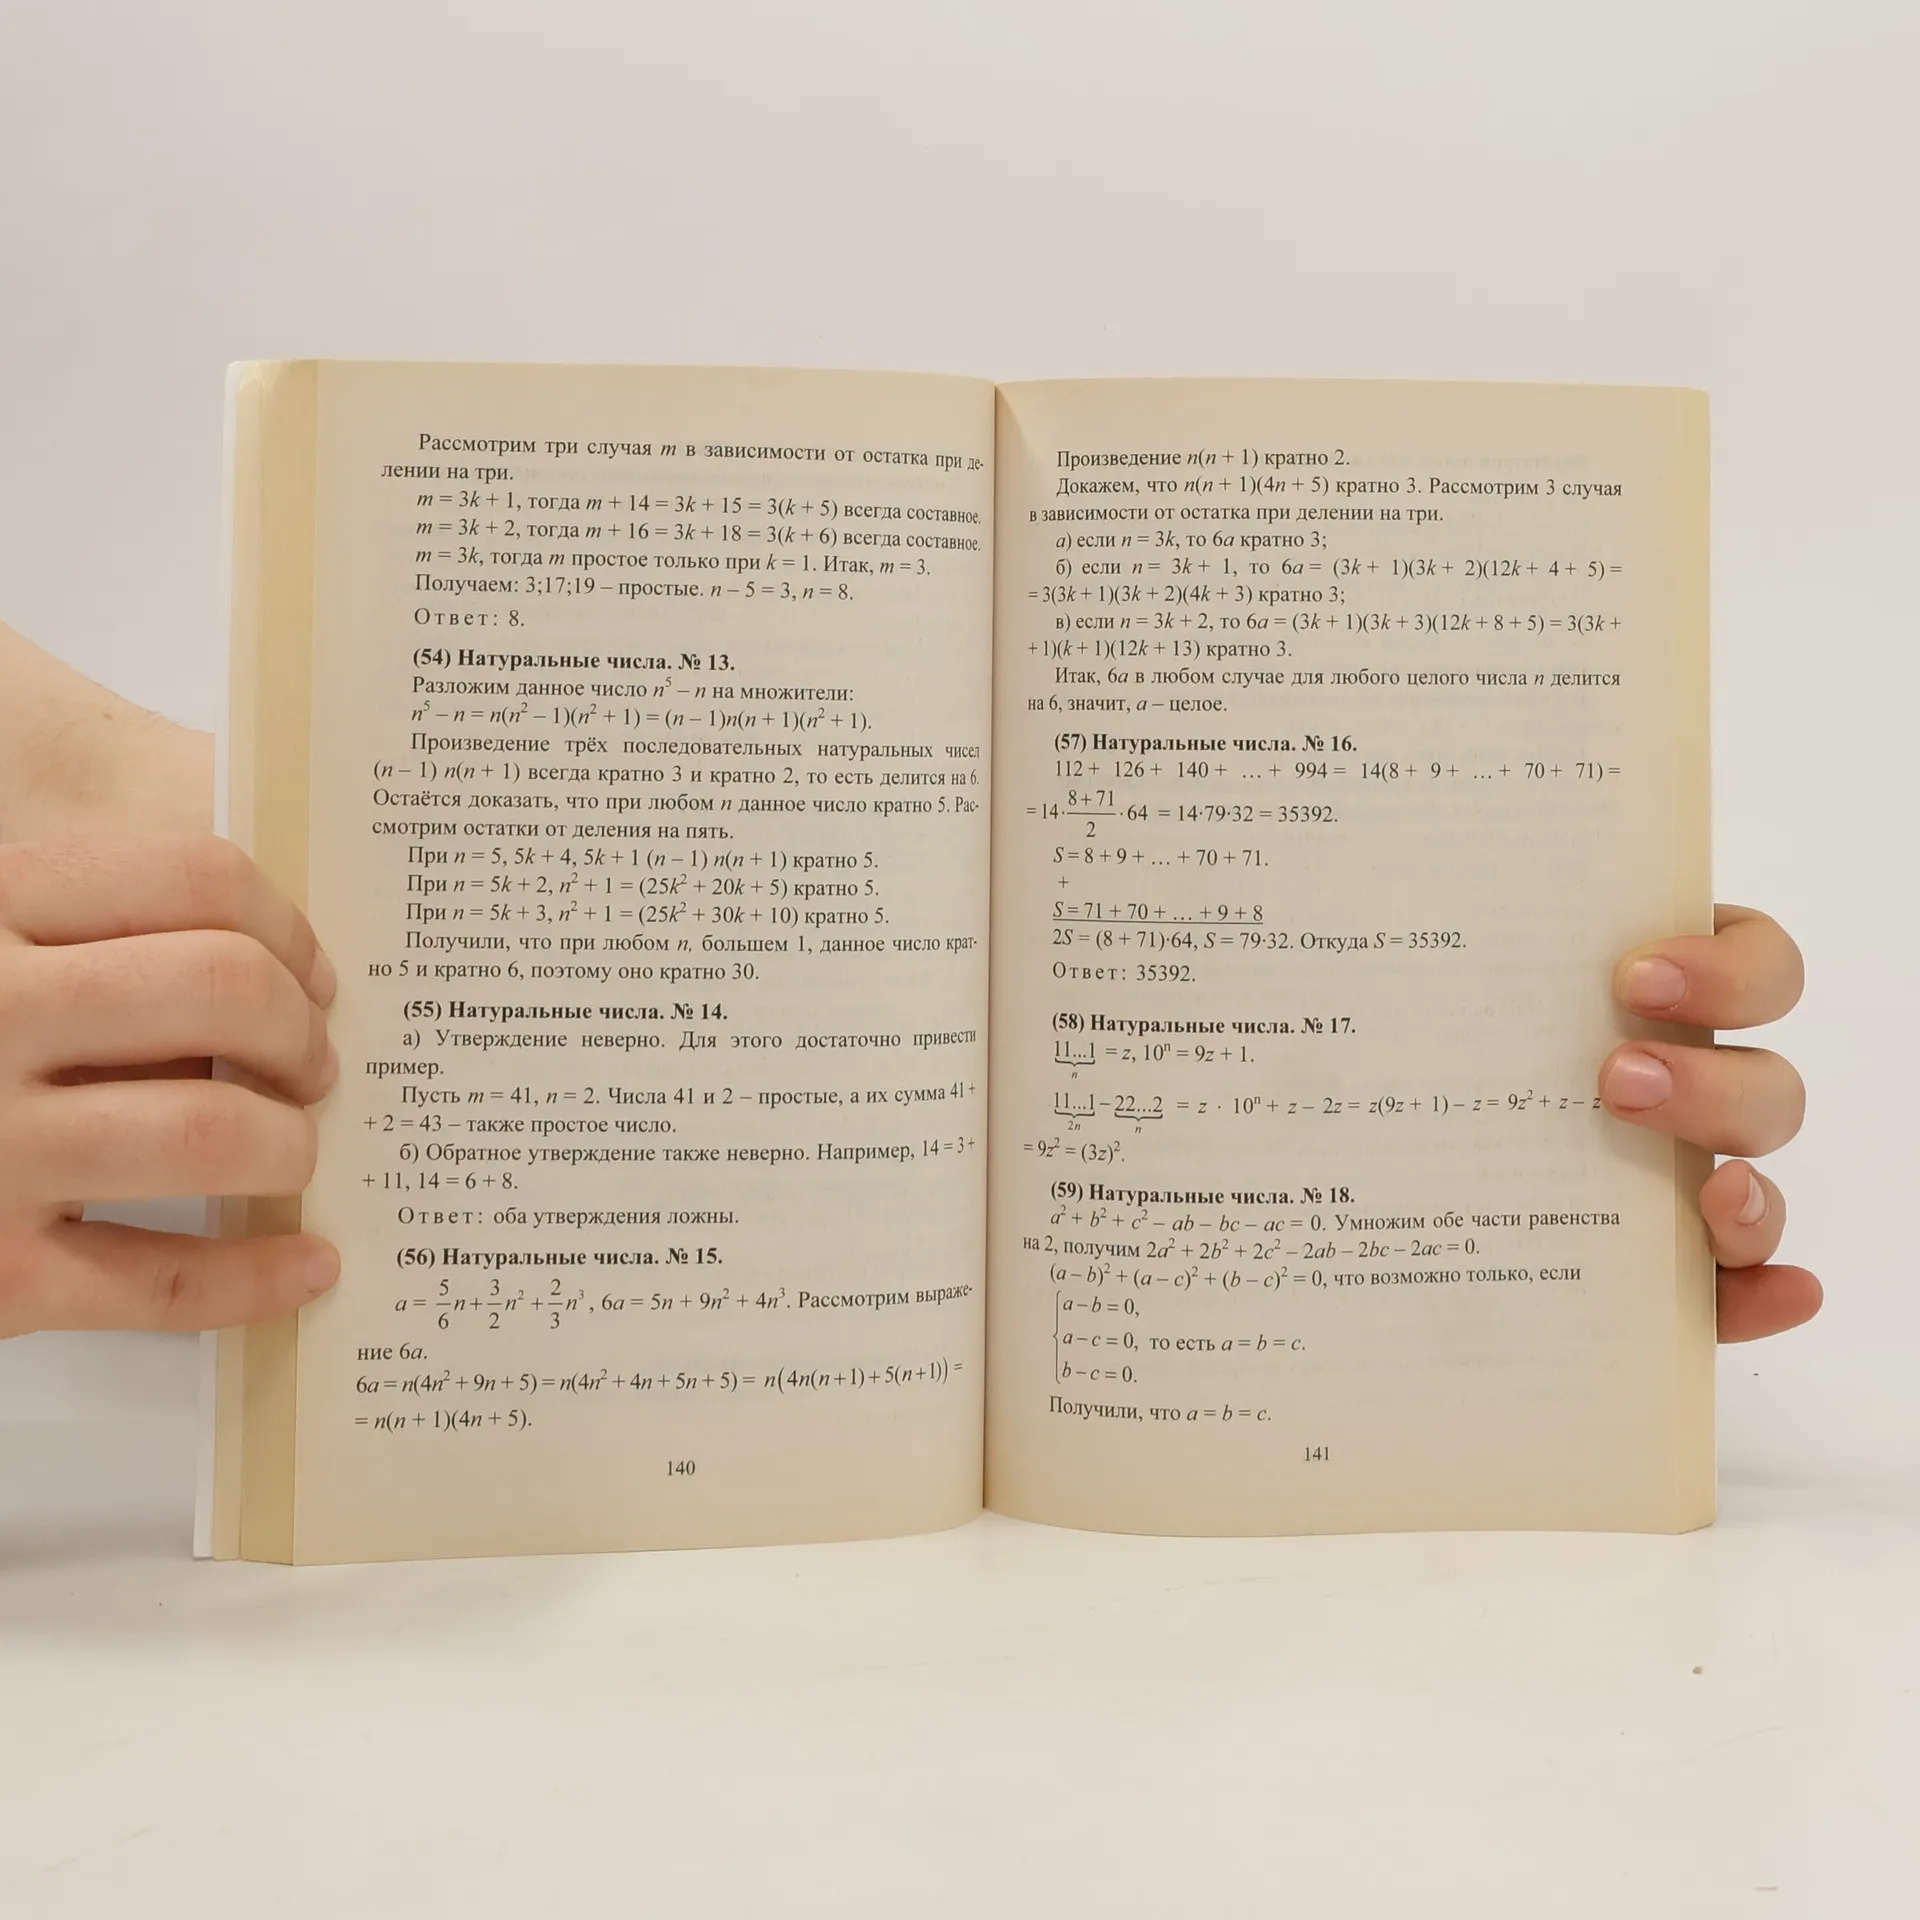 Рассмотрим три случая m в зависимости от остатка при де-
лении на три.
m = 3k + 1, тогда m + 14 = 3k + 15 = 3(k + 5) всегда составное.
m = 3k + 2, тогда m + 16 = 3k + 18 = 3(k + 6) всегда составное.
m = 3k, тогда m простое только при k = 1. Итак, m = 3.
Получаем: 3;17;19 – простые. n – 5 = 3, n = 8.
Ответ: 8.
(54) Натуральные числа. № 13.
Разложим данное число n⁵ – n на множители:
n⁵ – n = n(n² – 1)(n² + 1) = (n – 1)n(n + 1)(n² + 1).
Произведение трёх последовательных натуральных чисел
(n – 1) n(n + 1) всегда кратно 3 и кратно 2, то есть делится на 6.
Остаётся доказать, что при любом n данное число кратно 5. Рас-
смотрим остатки от деления на пять.
При n = 5, 5k + 4, 5k + 1 (n – 1) n(n + 1) кратно 5.
При n = 5k + 2, n² + 1 = (25k² + 20k + 5) кратно 5.
При n = 5k + 3, n² + 1 = (25k² + 30k + 10) кратно 5.
Получили, что при любом n, большем 1, данное число крат-
но 5 и кратно 6, поэтому оно кратно 30.
(55) Натуральные числа. № 14.
а) Утверждение неверно. Для этого достаточно привести
пример.
Пусть m = 41, n = 2. Числа 41 и 2 – простые, а их сумма 41 +
+ 2 = 43 – также простое число.
б) Обратное утверждение также неверно. Например, 14 = 3 +
+ 11, 14 = 6 + 8.
Ответ: оба утверждения ложны.
(56) Натуральные числа. № 15.
a = 5/6 n + 3/2 n² + 2/3 n³, 6a = 5n + 9n² + 4n³. Рассмотрим выраже-
ние 6a.
6a = n(4n² + 9n + 5) = n(4n² + 4n + 5n + 5) = n(4n(n+1)+5(n+1)) =
= n(n + 1)(4n + 5).
140
Произведение n(n + 1) кратно 2.
Докажем, что n(n + 1)(4n + 5) кратно 3. Рассмотрим 3 случая
в зависимости от остатка при делении на три.
а) если n = 3k, то 6a кратно 3;
б) если n = 3k + 1, то 6a = (3k + 1)(3k + 2)(12k + 4 + 5) =
= 3(3k + 1)(3k + 2)(4k + 3) кратно 3;
в) если n = 3k + 2, то 6a = (3k + 1)(3k + 3)(12k + 8 + 5) = 3(3k +
+ 1)(k + 1)(12k + 13) кратно 3.
Итак, 6a в любом случае для любого целого числа n делится
на 6, значит, a – целое.
(57) Натуральные числа. № 16.
112 + 126 + 140 + ... + 994 = 14(8 + 9 + ... + 70 + 71) =
= 14·(8+71)/2·64 = 14·79·32 = 35392.
S = 8 + 9 + ... + 70 + 71.
+
S = 71 + 70 + ... + 9 + 8
2S = (8 + 71)·64, S = 79·32. Откуда S = 35392.
Ответ: 35392.
(58) Натуральные числа. № 17.
11...1 = z, 10ⁿ = 9z + 1.
n
11...1 – 22...2 = z · 10ⁿ + z – 2z = z(9z + 1) – z = 9z² + z – z
2n n
= 9z² = (3z)².
(59) Натуральные числа. № 18.
a² + b² + c² – ab – bc – ac = 0. Умножим обе части равенства
на 2, получим 2a² + 2b² + 2c² – 2ab – 2bc – 2ac = 0.
(a – b)² + (a – c)² + (b – c)² = 0, что возможно только, если
a – b = 0,
a – c = 0, то есть a = b = c.
b – c = 0.
Получили, что a = b = c.
141